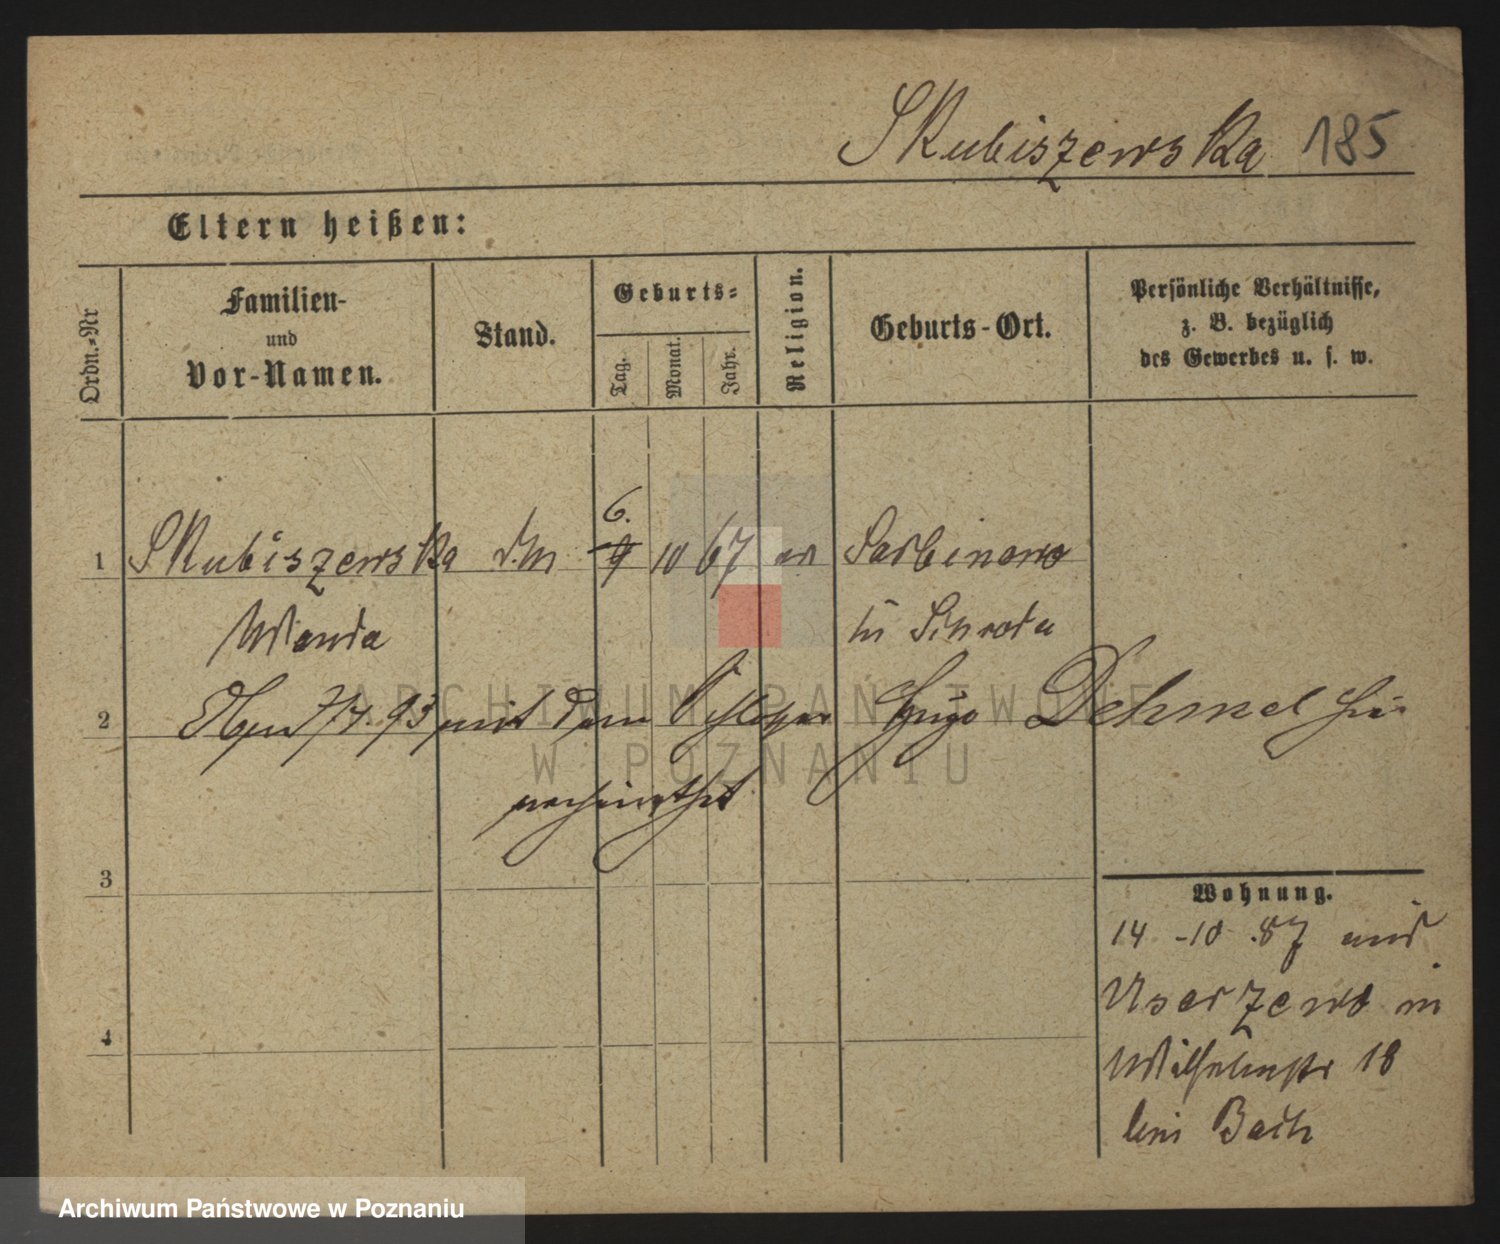 Skubiszewska 185
Eltern heißen:
Ordn.-Nr
Familien-
und
Vor-Namen.
Stand.
Geburts-
Tag.
Monat.
Jahr.
Religion.
Geburts-Ort.
Persönliche Verhältnisse,
z. B. bezüglich
des Gewerbes u. s. w.
6.
1 Skubiszewska 9 10 67 Sarbinowo
Wanda Schroda
2 7/4.93 mit dem Schlosser Hugo Dehmel hier
verheirathet
3
4
Wohnung.
14-10.87 aus
in
Wilhelmstr 18
bei Bach
ARCHIWUM PAŃSTWOWE
W POZNANIU
Archiwum Państwowe w Poznaniu